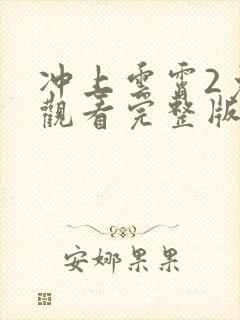 冲上雲霄2
觀看完整版
安娜果果